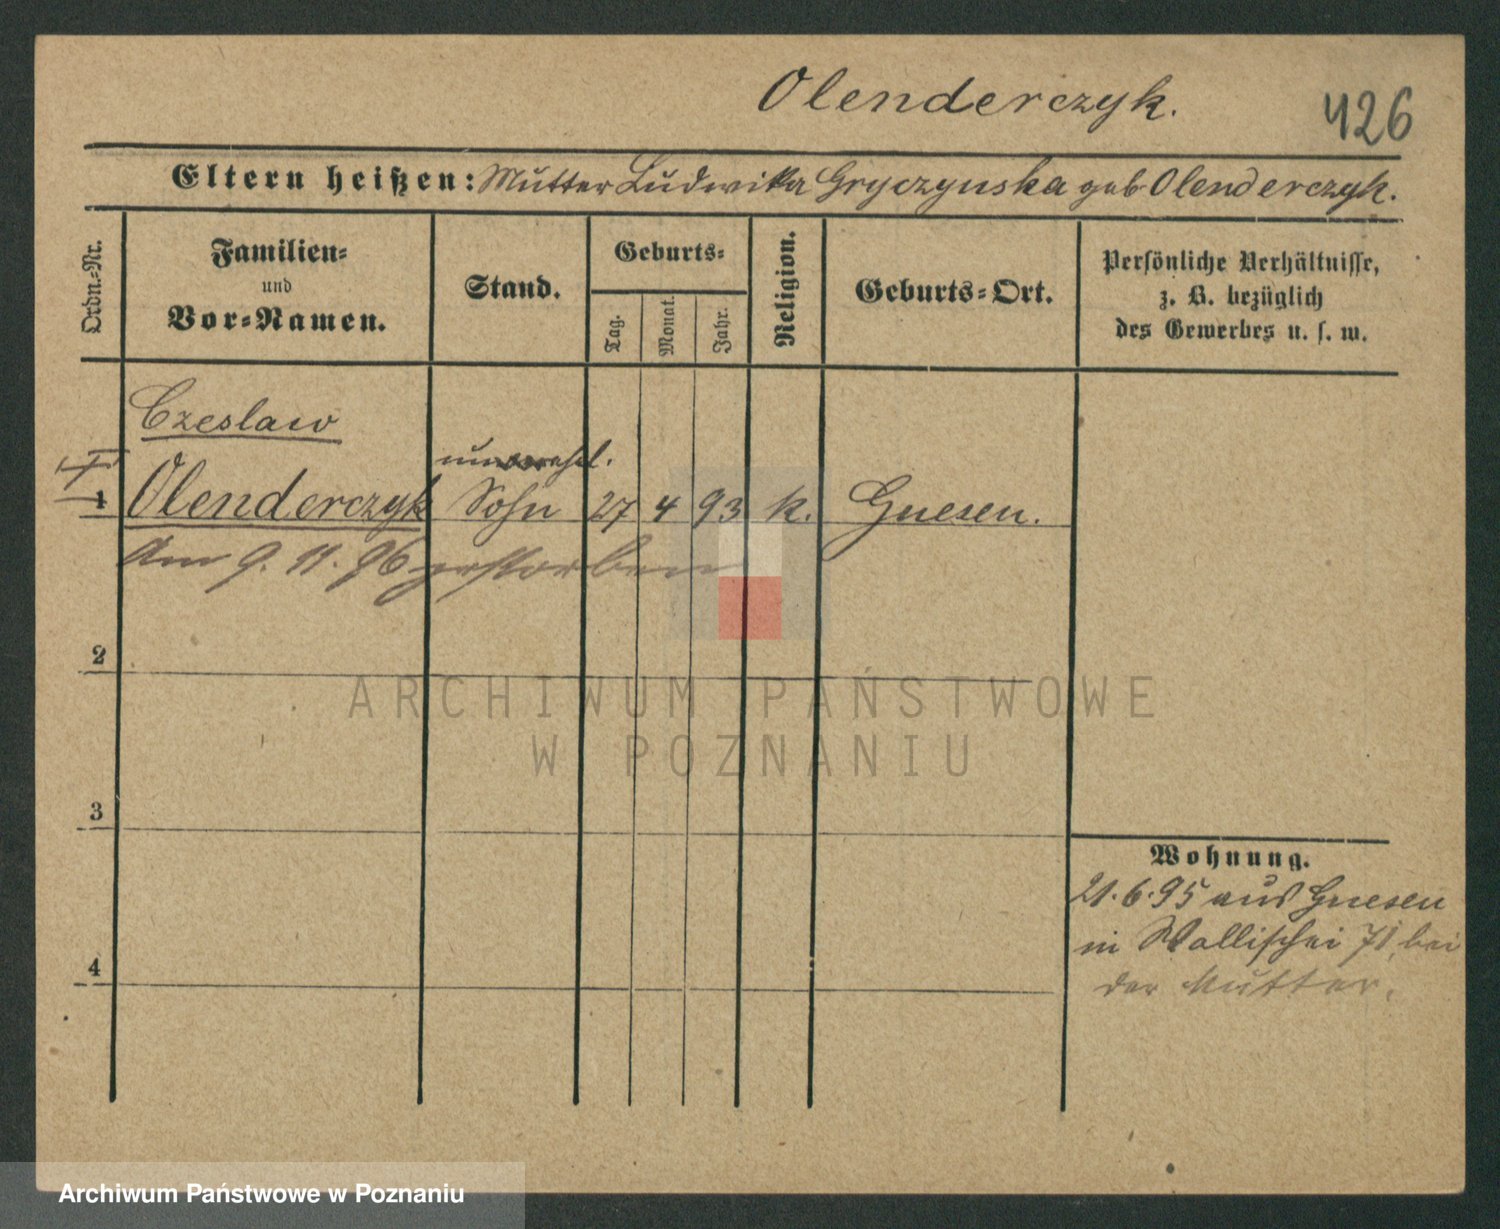 Olenderczyk.
426
Eltern heißen: Mutter Ludwika Gryczynska geb Olenderczyk.
Ordn.-Nr.
Familien-
und
Vor-Namen.
Stand.
Geburts-
Tag.
Monat.
Jahr.
Religion.
Geburts-Ort.
Persönliche Verhältnisse,
z. B. bezüglich
des Gewerbes u. s. w.
Czeslaw
unverehel.
1 Olenderczyk Sohn 27 4 93 k. Gnesen.
Am 9. 11. 96 gestorben
2
3
4
Wohnung.
21.6.95 aus Gnesen
in Wallischei 71, bei
der Mutter.
ARCHIWUM PAŃSTWOWE
W POZNANIU
Archiwum Państwowe w Poznaniu